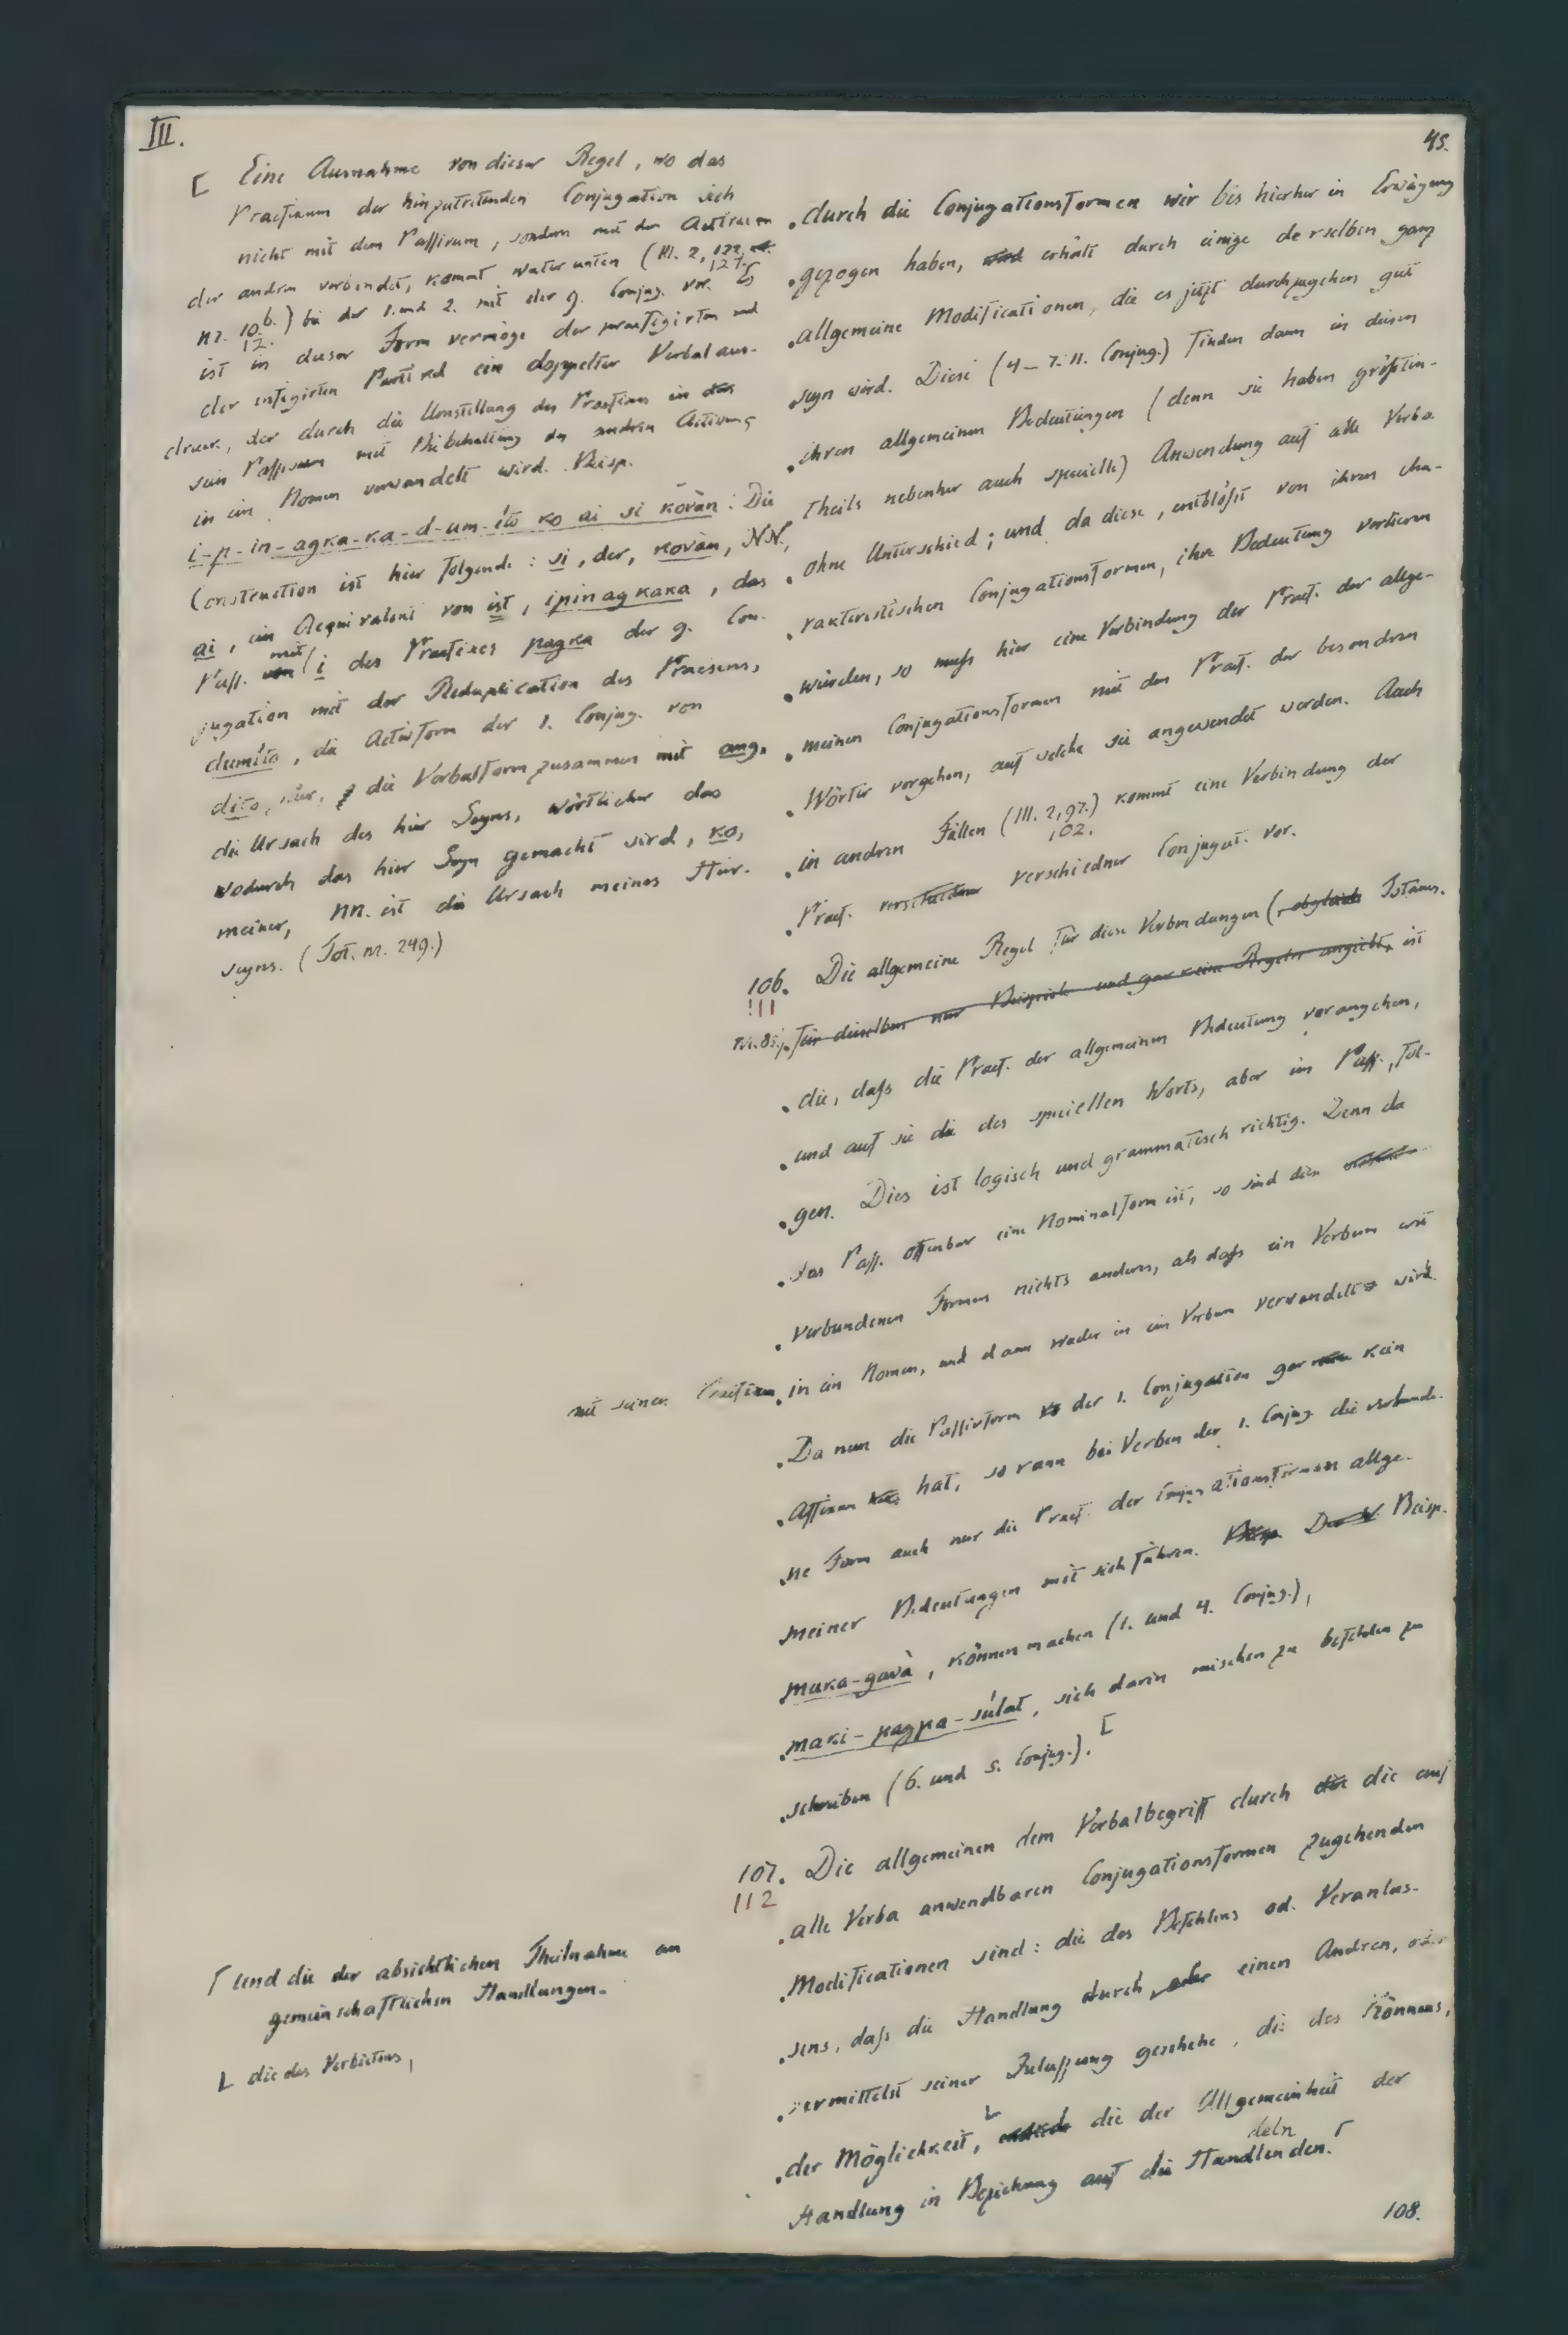 III.
45.
[ Eine Ausnahme von dieser Regel, wo das
Praefixum der hinzutretenden Conjugation sich
nicht mit dem Passivum, sondern mit dem Activum
der andren verbindet, kommt weiter unten (III. 2, 122.
127.
nr. 10. b.) bei der 1. und 2. mit der 9. Conjug. vor. Es
12.
ist in dieser Form vermöge der praefigirten und
der infigirten Partikel ein doppelter Verbalaus-
druck, der durch die Umstellung des Praefixes in das
sein Passivum mit Beibehaltung des andren Activums
in ein Nomen verwandelt wird. Beisp.
i-p-in-agka-ka-d-um-íto ko ai si kovàn: Die
Construction ist hier folgende: si, der, kovàn, NN,
ai, ein Aequivalent von ist, ipinagkaka, das
Pass. von mit i des Praefixes pagka der 9. Con-
jugation mit der Reduplication des Praesens,
dumíto, die Activform der 1. Conjug. von
díto, hier, die Verbalform zusammen mit ang,
die Ursach des hier Seyns, wörtlicher das
wodurch das hier Seyn gemacht wird, ko,
meiner, NN. ist die Ursach meines Hier-
seyns. (Tot. nr. 249.)
durch die Conjugationsformen wir bis hierher in Erwägung
gezogen haben, wird erhält durch einige derselben ganz
allgemeine Modificationen, die es jetzt durchzugehen gut
seyn wird. Diese (4–7. 11. Conjug.) finden dann in diesen
ihren allgemeinen Bedeutungen (denn sie haben größten-
theils nebenher auch specielle) Anwendung auf alle Verba
ohne Unterschied; und da diese, entblößt von ihren cha-
rakteristischen Conjugationsformen, ihre Bedeutung verlieren
würden, so muß hier eine Verbindung der Praef. der allge-
meinen Conjugationsformen mit den Praef. der besondren
Wörter vorgehen, auf welche sie angewendet werden. Auch
in andren Fällen (III. 2, 97.) kommt eine Verbindung der
102.
Praef. verschiedner verschiedner Conjugat. vor.
106. Die allgemeine Regel für diese Verbindungen (obgleich Totanes.
111
nr. 85.) für dieselben nur Beispiele und gar keine Regeln angiebt, ist
die, daß die Praef. der allgemeinen Bedeutung vorangehen,
und auf sie die des speciellen Worts, aber im Pass., fol-
gen. Dies ist logisch und grammatisch richtig. Denn da
das Pass. offenbar eine Nominalform ist, so sind dien
verbundenen Formen nichts anders, als daß ein Verbum erst
mit seinem Praefixum in ein Nomen, und dann wieder in ein Verbum verwandelt wird.
Da nun die Passivform der 1. Conjugation gar kein
Affixum hat, so kann bei Verben der 1. Conjug. die verbunde-
ne Form auch nur die Praef. der Conjugationsformen allge-
meiner Bedeutungen mit sich führen. Beisp.
maka-gavà, können machen (1. und 4. Conjug.),
maki-pagpa-súlat, sich darin mischen zu befehlen zu
schreiben (6. und 5. Conjug.). [
107. Die allgemeinen dem Verbalbegriff durch die die auf
112
alle Verba anwendbaren Conjugationsformen zugehenden
Modificationen sind: die des Befehlens od. Veranlas-
sens, daß die Handlung durch, oder einen Andren, oder
vermittelst seiner Zulassung geschehe, die des Könnens,
der Möglichkeit, die der Allgemeinheit der
deln
Handlung in Beziehung auf die Handlenden.
┌ und die der absichtlichen Theilnahme an
gemeinschaftlichen Handlungen.
L die des Verbietens,
108.